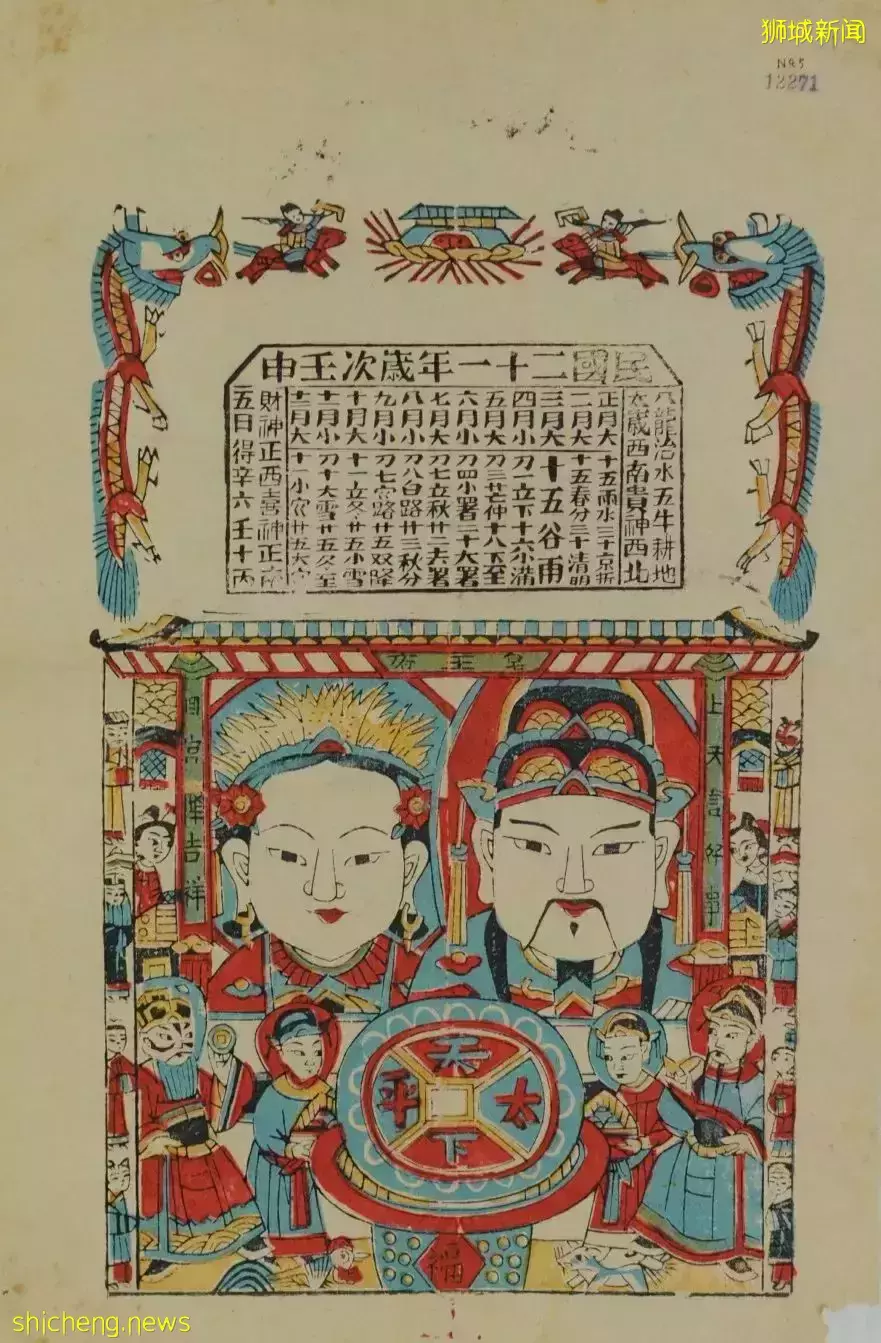 狮城新闻
N95
12271
民國二十一年歲次壬申
八龍治水五牛耕地
太歲西南貴神西北
正月大 十五雨水三十京折
二月大 十五春分三十清明
三月大 十五谷雨
四月小 刀一立下十六小满
五月大 刀三芒仲十八下至
六月小 刀四小署二十大署
七月大 刀七立秋廿二大署
八月小 刀八白路廿三秋分
九月小 刀七寒路廿五双降
十月大 十一立冬廿五小雪
十一月小 刀十大雪廿五冬至
十二月大 十一小寒廿五大
財神正西喜神正南
五日得辛六壬十丙
王府
上天言好事
回宮降吉祥
天下太平
福
shicheng.news